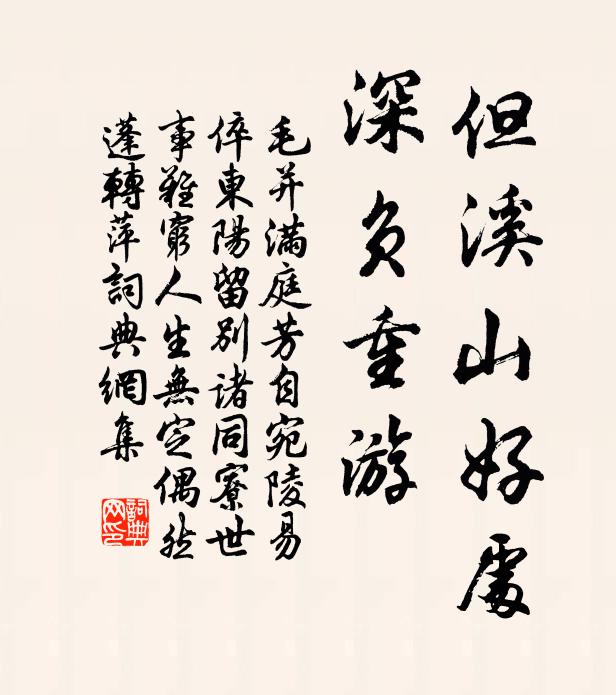 但溪山好處
深負重游
毛并滿庭芳自宛陵易
倅東陽留別諸同寮世
事難窮人生無定偶然
蓬轉萍詞典網集
詞典網印